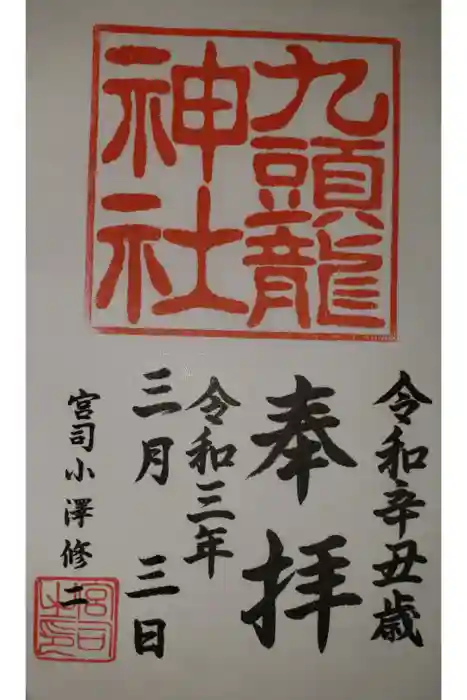 九頭龍
神社
令和辛丑歳
奉拝
令和三年
三月 三日
宮司小澤修二
宮司之印